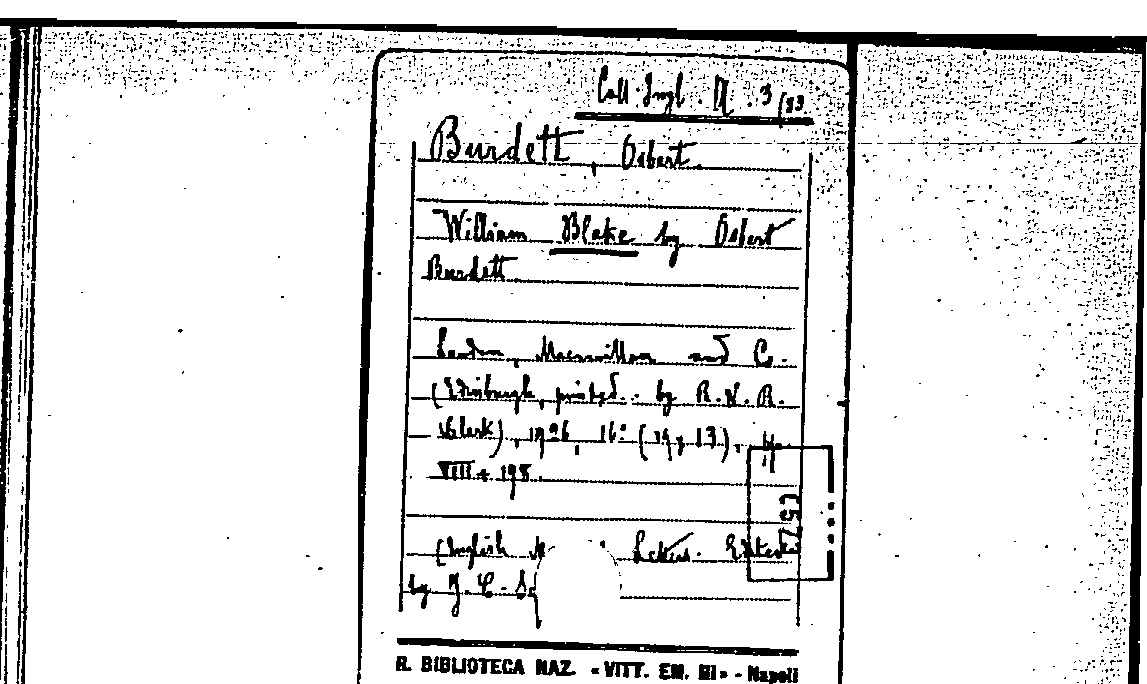 Coll. Ingl. A. 3/83
Burdett, Osbert.
William Blake by Osbert
Burdett
London, Macmillan and C.
(Edinburgh, printed.. by R. & R.
Clerk), 1926, 16° (19 x 13), pp.
VIII + 198.
(English Letters. Edited
by J. C. Sq
R. BIBLIOTECA NAZ. «VITT. EM. III» - Napoli